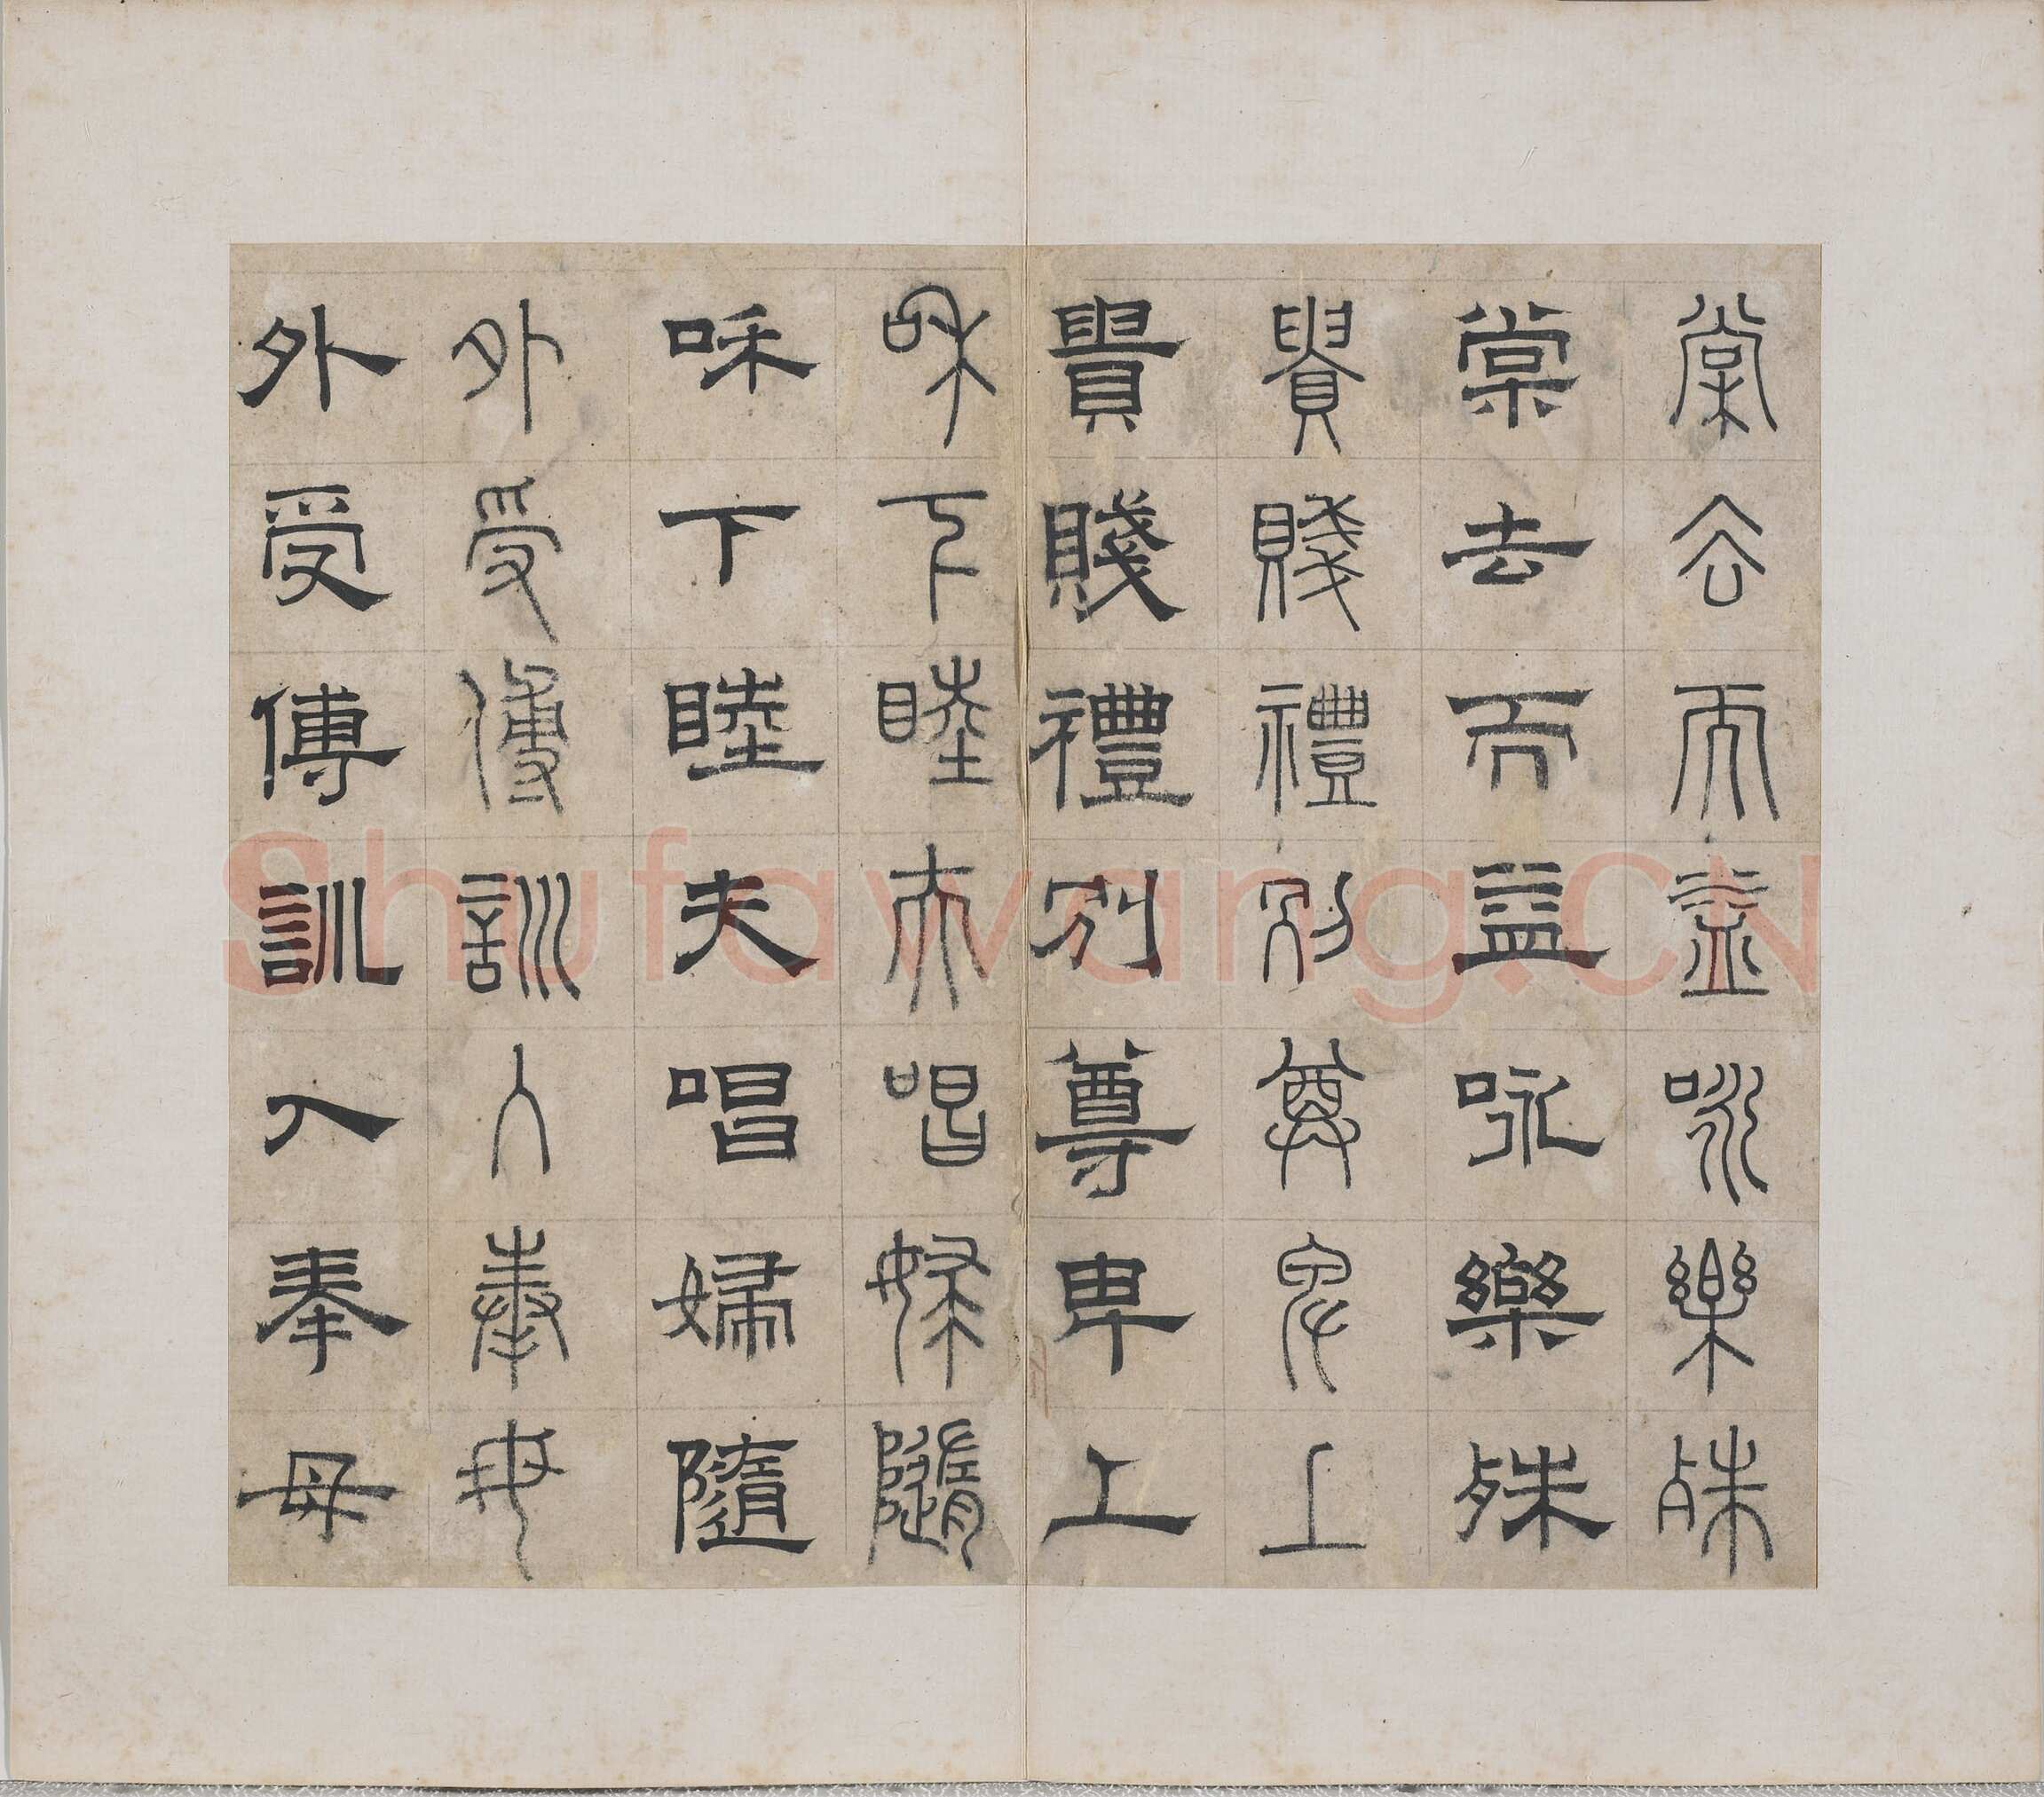 棠去而益咏樂殊
棠去而益咏樂殊
貴賤禮別尊卑上
貴賤禮別尊卑上
咊下睦夫唱婦隨
咊下睦夫唱婦隨
外受傅訓入奉母
外受傅訓入奉母
Shufawang.CN